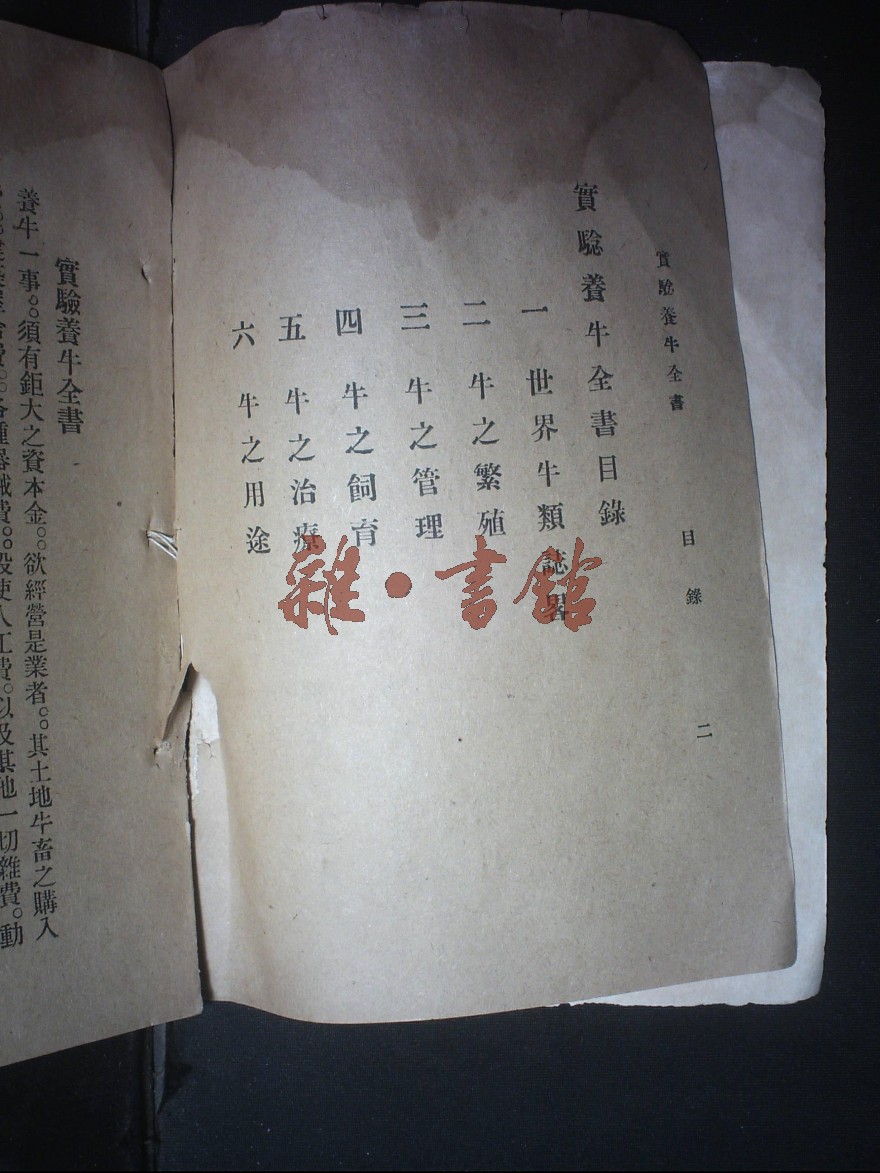 實驗養牛全書
目錄
二
實驗養牛全書目錄
一 世界牛類誌畧
二 牛之繁殖
三 牛之管理
四 牛之飼育
五 牛之治療
六 牛之用途
雜·書館
實驗養牛全書
養牛一事。須有鉅大之資本金。欲經營是業者。其土地牛畜之購入
費。各種器械費。設使人工費。以及其他一切雜費。動